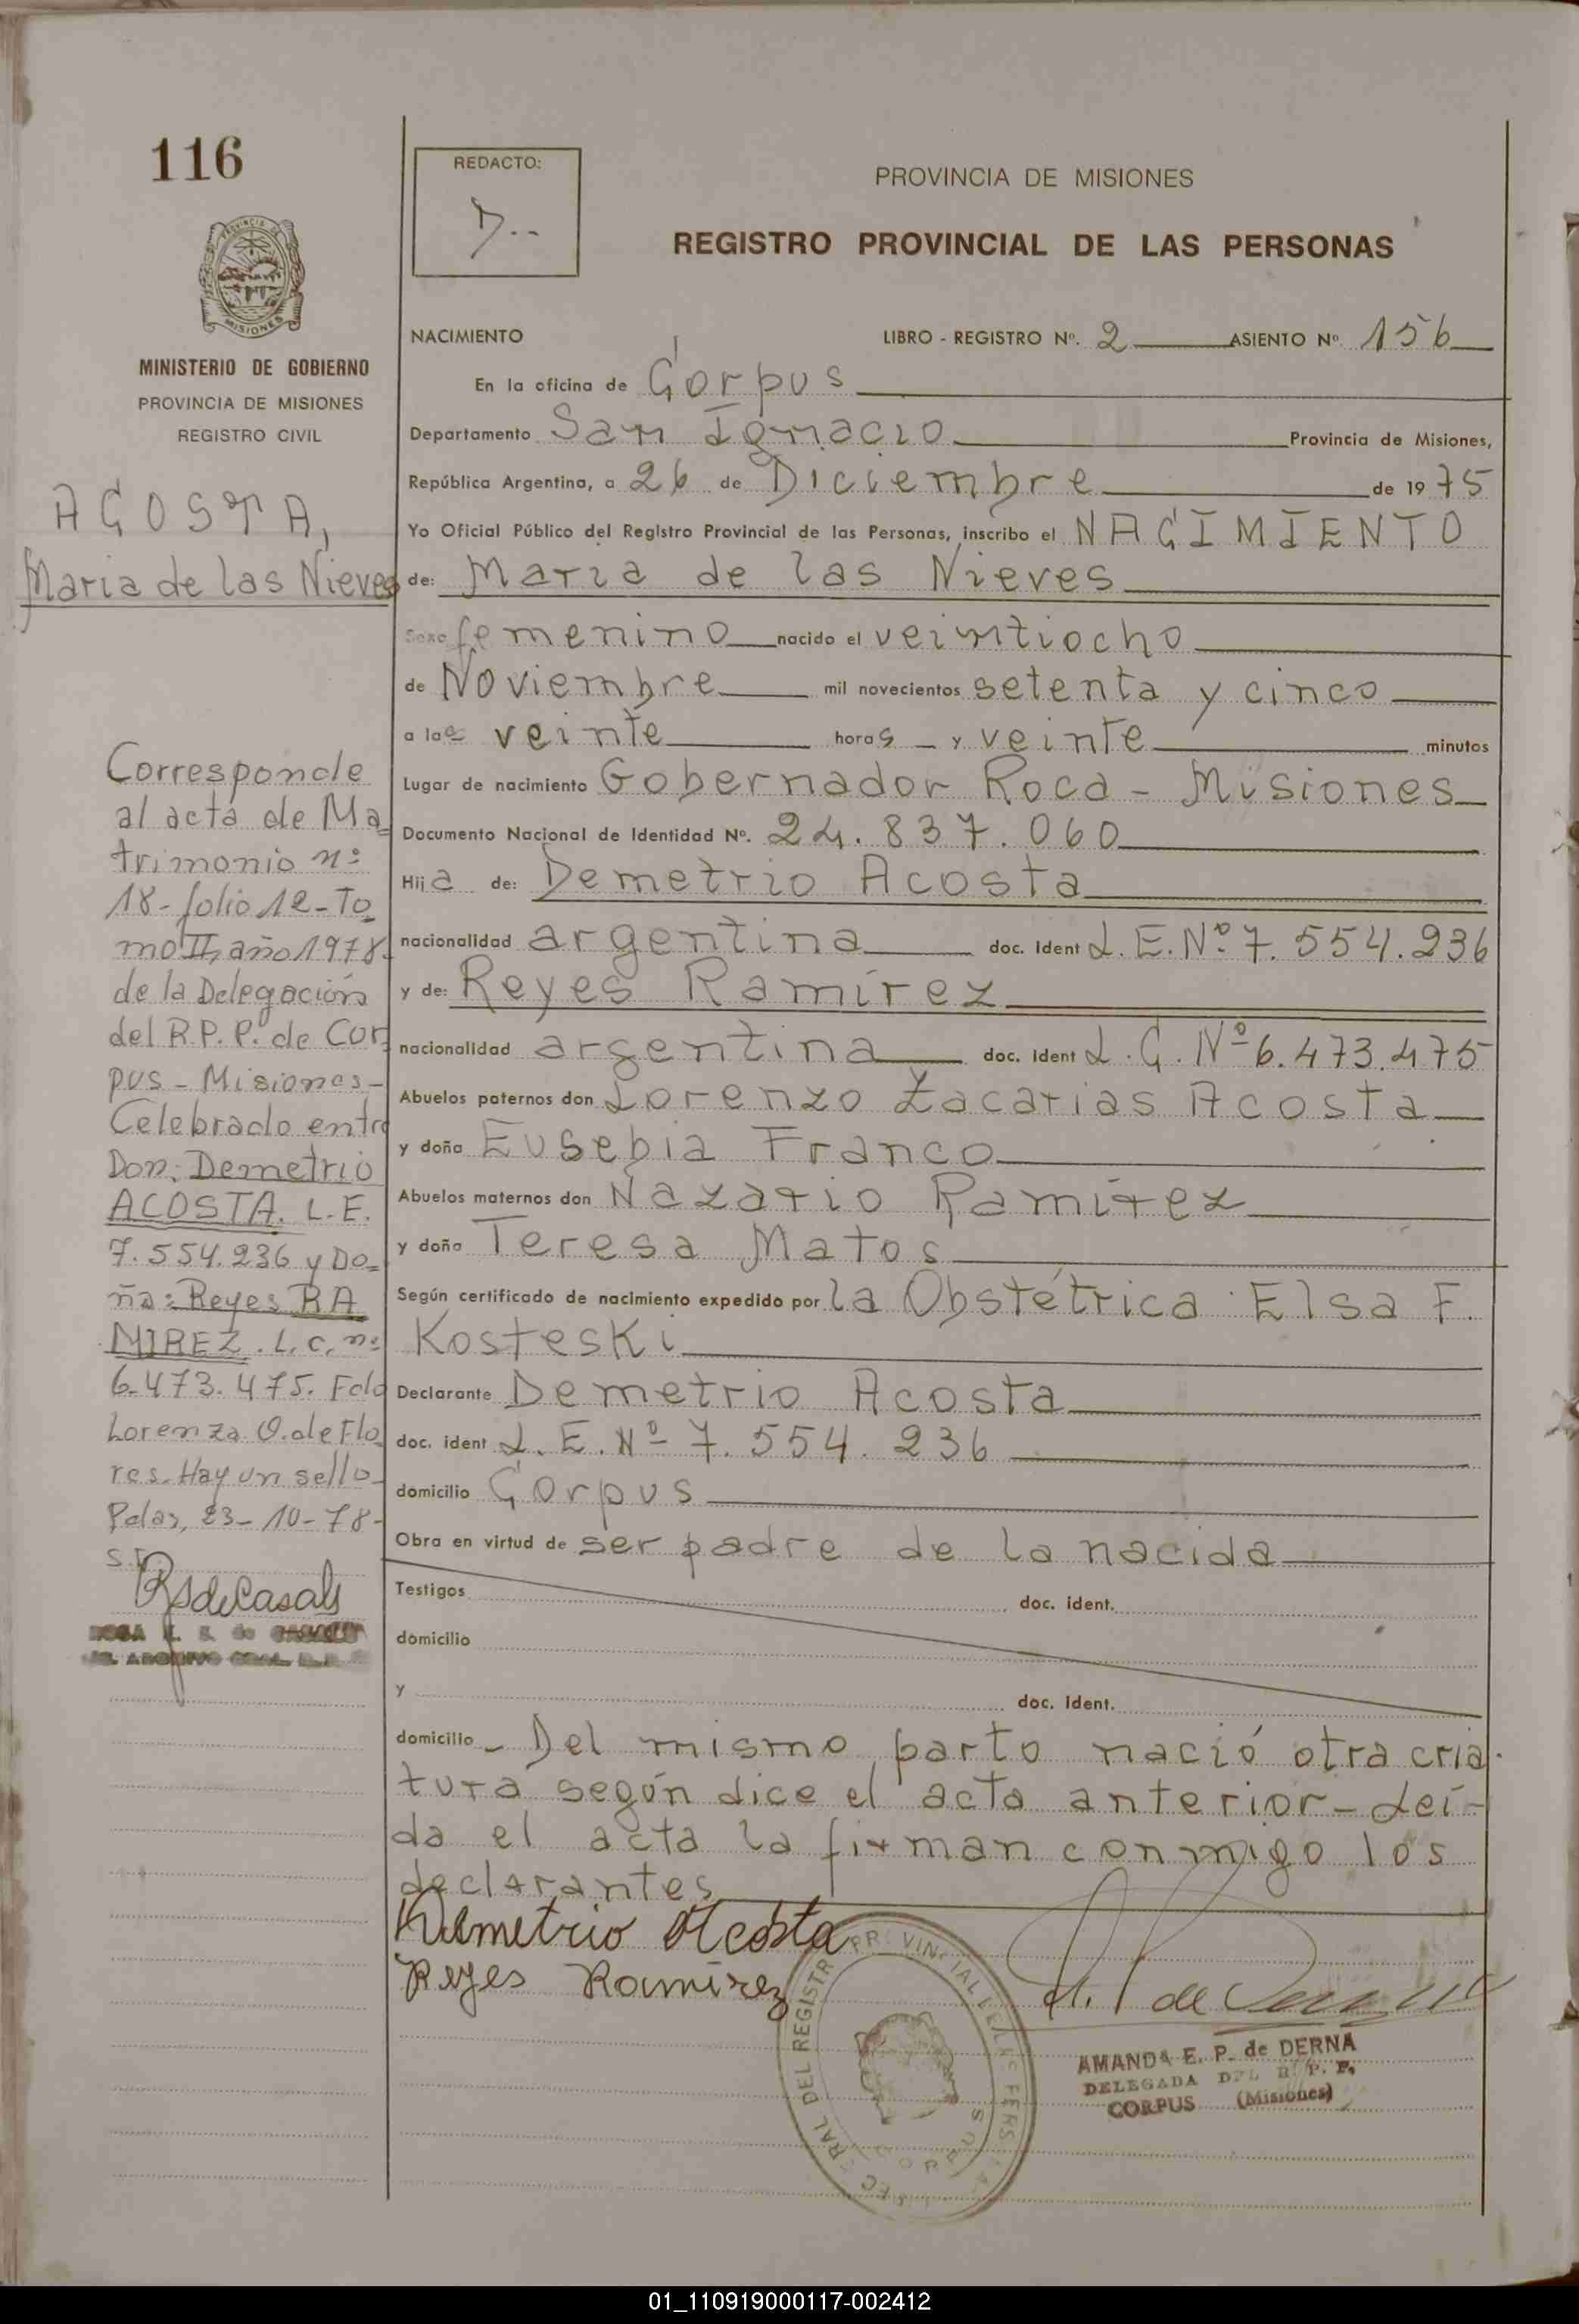 116
MINISTERIO DE GOBIERNO
PROVINCIA DE MISIONES
REGISTRO CIVIL
ACOSTA,
Maria de las Nieves
Corresponde
al acta de Ma
trimonio nº
18-folio 12-To
mo II, año 1978.
de la Delegación
del R.P.P. de Cor
pus - Misiones -
Celebrado entre
Don: Demetrio
ACOSTA. L.E.
7.554.236 y Do=
ña: Reyes RA
MIREZ. L.C. nº
6.473.475. Fdo
Lorenza O. de Flo
res. Hay un sello
Pdas, 23-10-78-
REDACTO:
PROVINCIA DE MISIONES
REGISTRO PROVINCIAL DE LAS PERSONAS
NACIMIENTO LIBRO - REGISTRO Nº. 2 ASIENTO Nº 156
En la oficina de Corpus
Departamento San Ignacio Provincia de Misiones,
República Argentina, a 26 de Diciembre de 1975
Yo Oficial Público del Registro Provincial de las Personas, inscribo el NACIMIENTO
de: Maria de las Nieves
Sexo femenino nacido el veintiocho
de Noviembre mil novecientos setenta y cinco
a las veinte horas y veinte minutos
Lugar de nacimiento Gobernador Roca - Misiones
Documento Nacional de Identidad Nº. 24.837.060
Hija de: Demetrio Acosta
nacionalidad argentina doc. Ident L.E.Nº 7.554.236
y de: Reyes Ramírez
nacionalidad argentina doc. Ident L.C. Nº 6.473.475
Abuelos paternos don Lorenzo Zacarias Acosta
y doña Eusebia Franco
Abuelos maternos don Nazario Ramírez
y doña Teresa Matos
Según certificado de nacimiento expedido por la Obstétrica Elsa F.
Kosteski
Declarante Demetrio Acosta
doc. ident L.E.Nº 7.554.236
domicilio Corpus
Obra en virtud de ser padre de la nacida
Testigos doc. ident.
domicilio
y doc. ident.
domicilio - Del mismo parto nació otra cria
tura según dice el acta anterior - Leí-
da el acta la firman conmigo los
declarantes
Demetrio Acosta
Reyes Ramirez
AMANDA E. P. de DERNA
DELEGADA DEL R. P. P.
CORPUS (Misiones)
01_110919000117-002412